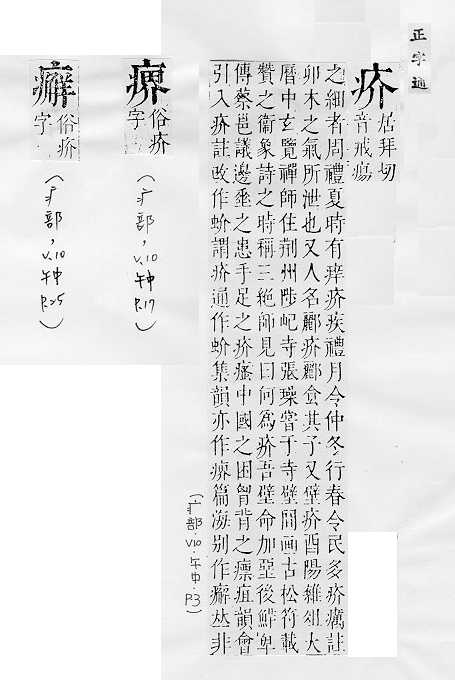 正字通
疥 居拜切音戒瘍
之細者周禮夏時有痒疥疾禮月令仲冬行春令民多疥癘註
卯木之氣所泄也又人名酈疥酈食其子又壁疥酉陽雜俎大
曆中玄覽禪師住荆州陟屺寺張璪嘗于寺壁間画古松符載
贊之衞象詩之時稱三絶師見曰何爲疥吾壁命加堊後鮮卑
傳蔡邕議邊垂之患手足之疥瘙中國之困胷背之瘭疽韻會
引入疥註改作蚧謂疥通作蚧集韻亦作㾏篇海别作癬𠀤非
(疒部 V.10.午中.P.3)
㾏 俗疥字
(疒部, V.10 午中 P.17)
俗疥字
(疒部, V.10 午中 P.25)